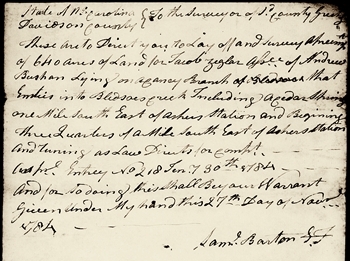 State of No Carolina } To the Surveyor of Sd County Greeting
Davidson County }
These are to Direct you to Lay off and Survey a preemption
of 640 acres of Land for Jacob Zeglar Asse. of Andrew
Bushan Lying on a Branch of Bledsoes that
Emties into Bledsoes creek Including a Cedar Spring
one Mile South East of Ashers Station and Begining
Three Quarters of a Mile South East of Ashers Station
and runing as Law Directs for compt.
No 218 30th 1784
And for so doing this shall Be your Warrant
Given under My hand this 27th Day of Novr
1784
Saml. Barton